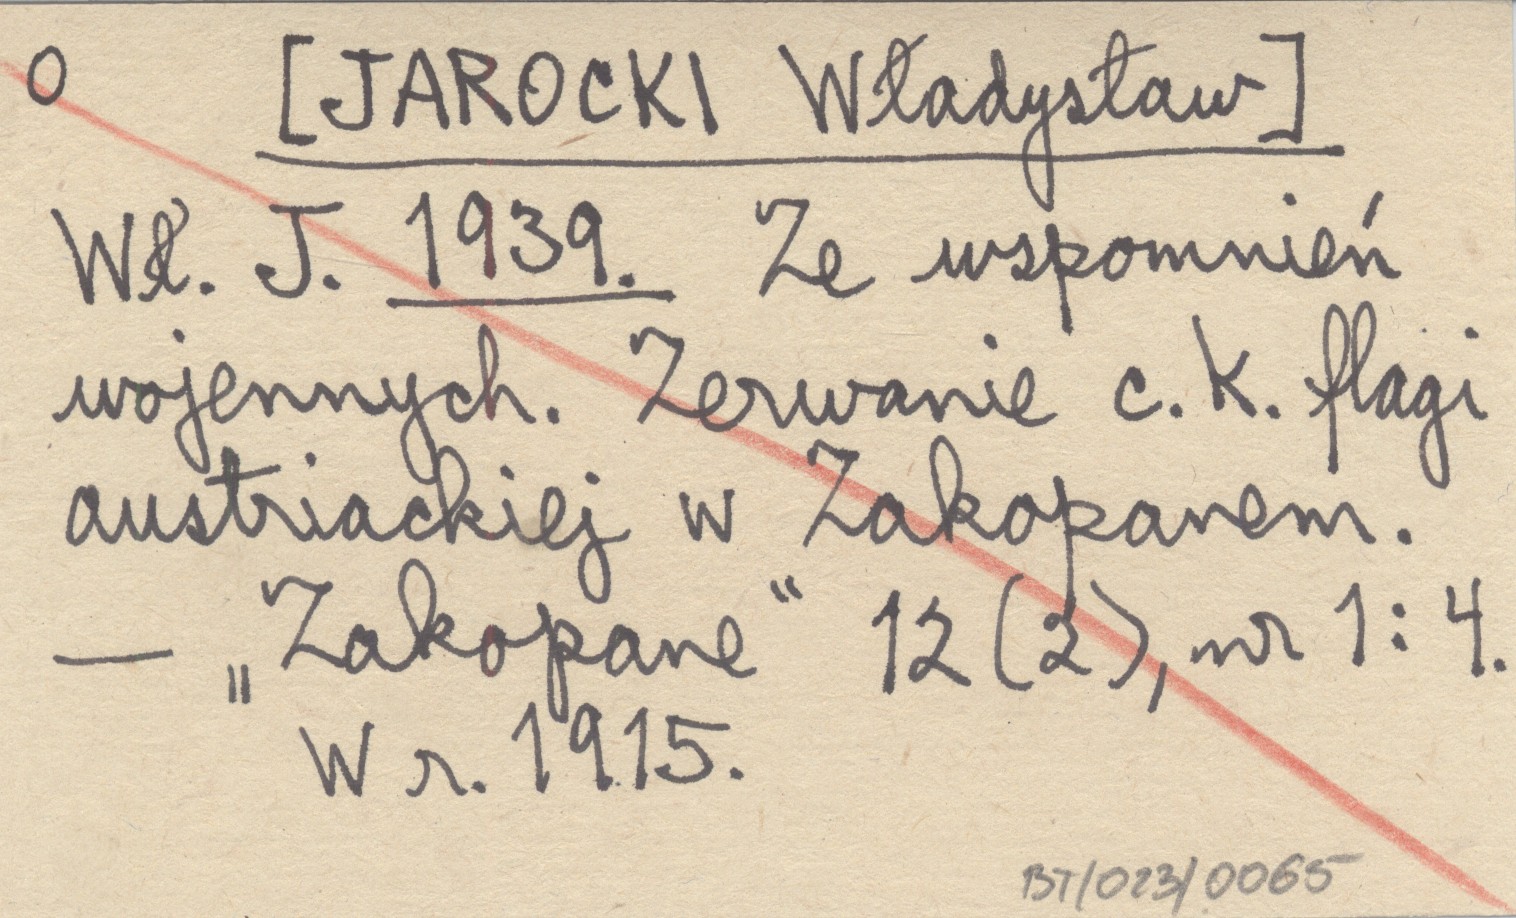 0 [JAROCKI Władysław]
Wł. J. 1939. Ze wspomnień
wojennych. Zerwanie c.k. flagi
austriackiej w Zakopanem.
— „Zakopane“ 12(2), nr 1:4.
W r. 1915.
BT/023/0065